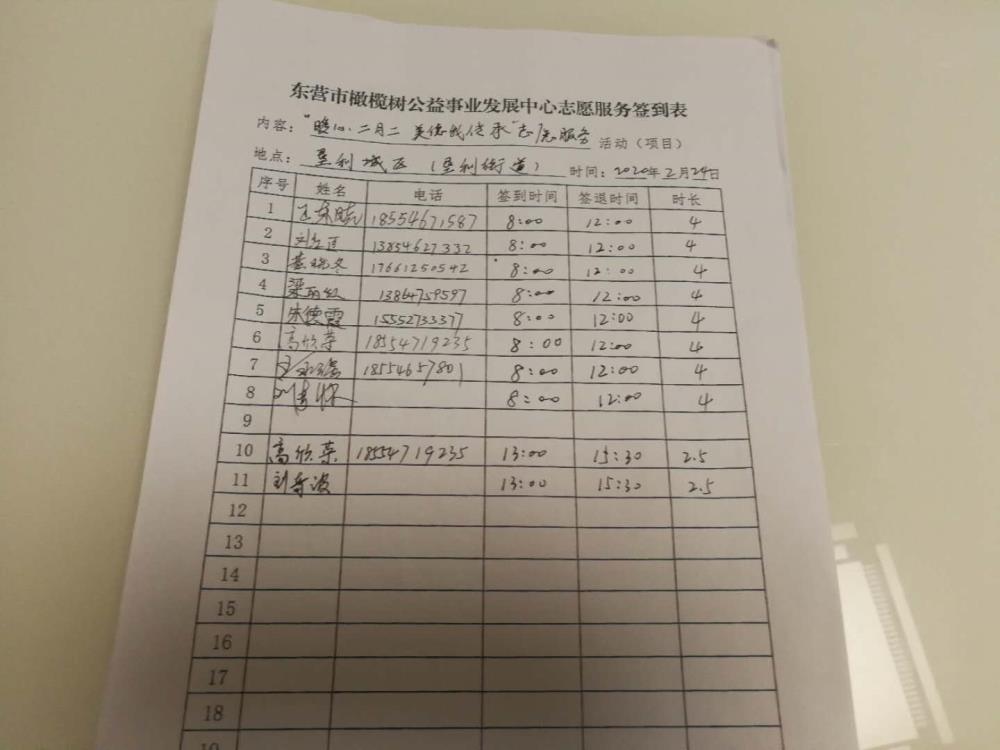 东营市橄榄树公益事业发展中心志愿服务签到表
内容：“暖心二月二 美德我传承”志愿服务 活动（项目）
地点：垦利城区（垦利街道） 时间：2020年2月24日
序号 姓名 电话 签到时间 签退时间 时长
1 18554671587 8:00 12:00 4
2 13854627332 8:00 12:00 4
3 17661250542 8:00 12:00 4
4 梁丽红 13864759597 8:00 12:00 4
5 朱德霞 15552733377 8:00 12:00 4
6 高欣荣 18554719235 8:00 12:00 4
7 18554657801 8:00 12:00 4
8 8:00 12:00 4
9
10 高欣荣 18554719235 13:00 15:30 2.5
11 13:00 15:30 2.5
12
13
14
15
16
17
18
19